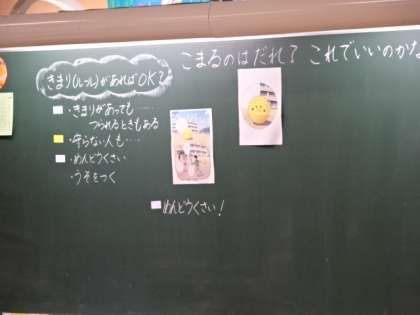 きまり(ルール)があればOK?
・きまりがあっても……
つられるときもある
・守らない人も…
・めんどうくさい
・うそをつく
こまるのはだれ? これでいいのかな
めんどうくさい!